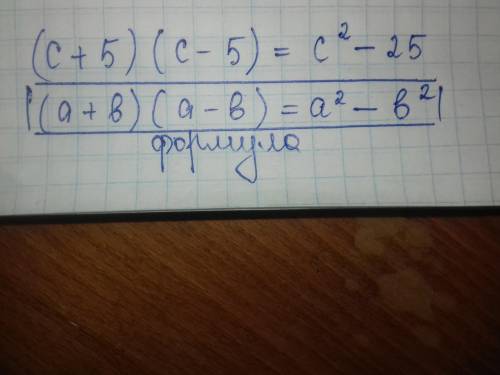 (c + 5) (c - 5) = c² - 25
(a + в) (a - в) = a² - в²
формула